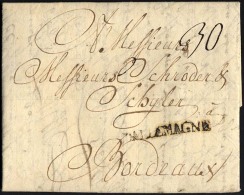 A Messieurs 30
Messieurs Schröder &
Schyler
D'ALLEMAGNE
Bordeaux